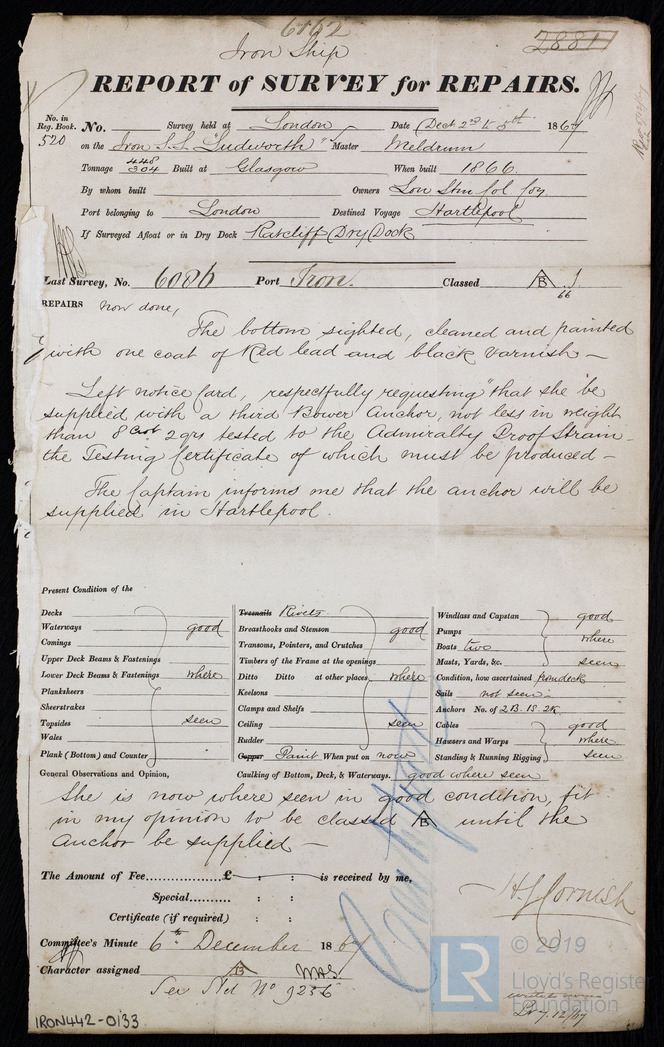 6162
Iron Ship
2881
REPORT of SURVEY for REPAIRS.
No. in Reg. Book. 520
No. Survey held at London Date Dect 2nd to 5th 1867
on the Iron S.S. "Ludworth" Master Meldrum
Tonnage 448 304 Built at Glasgow When built 1866
By whom built Owners Lon Stm Col Coy
Port belonging to London Destined Voyage Hartlepool
If Surveyed Afloat or in Dry Dock Ratcliff Dry Dock
Last Survey, No. 6086 Port Iron. Classed B 1
66
REPAIRS now done,
The bottom sighted, cleaned and painted
with one coat of Red lead and black varnish –
Left notice Card, respectfully requesting "that she be
supplied with a third Bower Anchor, not less in weight
than 8 Cwt 2 qrs tested to the Admiralty Proof Strain –
the Testing Certificate of which must be produced –
The Captain informs me that the anchor will be
supplied in Hartlepool.
Present Condition of the
Decks
Waterways good
Comings
Upper Deck Beams & Fastenings
Lower Deck Beams & Fastenings where
Planksheers
Sheerstrakes
Topsides seen
Wales
Plank (Bottom) and Counter
Treenails Rivets
Breasthooks and Stemson good
Transoms, Pointers, and Crutches
Timbers of the Frame at the openings
Ditto Ditto at other places, where
Keelsons
Clamps and Shelfs
Ceiling seen
Rudder
Copper Paint When put on now
Windlass and Capstan good
Pumps where
Boats two
Masts, Yards, &c. seen
Condition, how ascertained from deck
Sails not seen –
Anchors No. of 2B. 1S. 2K
Cables good
Hawsers and Warps where
Standing & Running Rigging seen
General Observations and Opinion, Caulking of Bottom, Deck, & Waterways. good where seen
She is now where seen in good condition, fit
in my opinion to be classed B until the
Anchor be supplied –
The Amount of Fee £ : : is received by me,
Special : :
Certificate (if required) : :
H J Cornish
Committee's Minute 6th December 1867
Character assigned B
See Hd No 9236
IRON442-0133
LR
© 2019
Lloyd's Register
Foundation
7.12/67